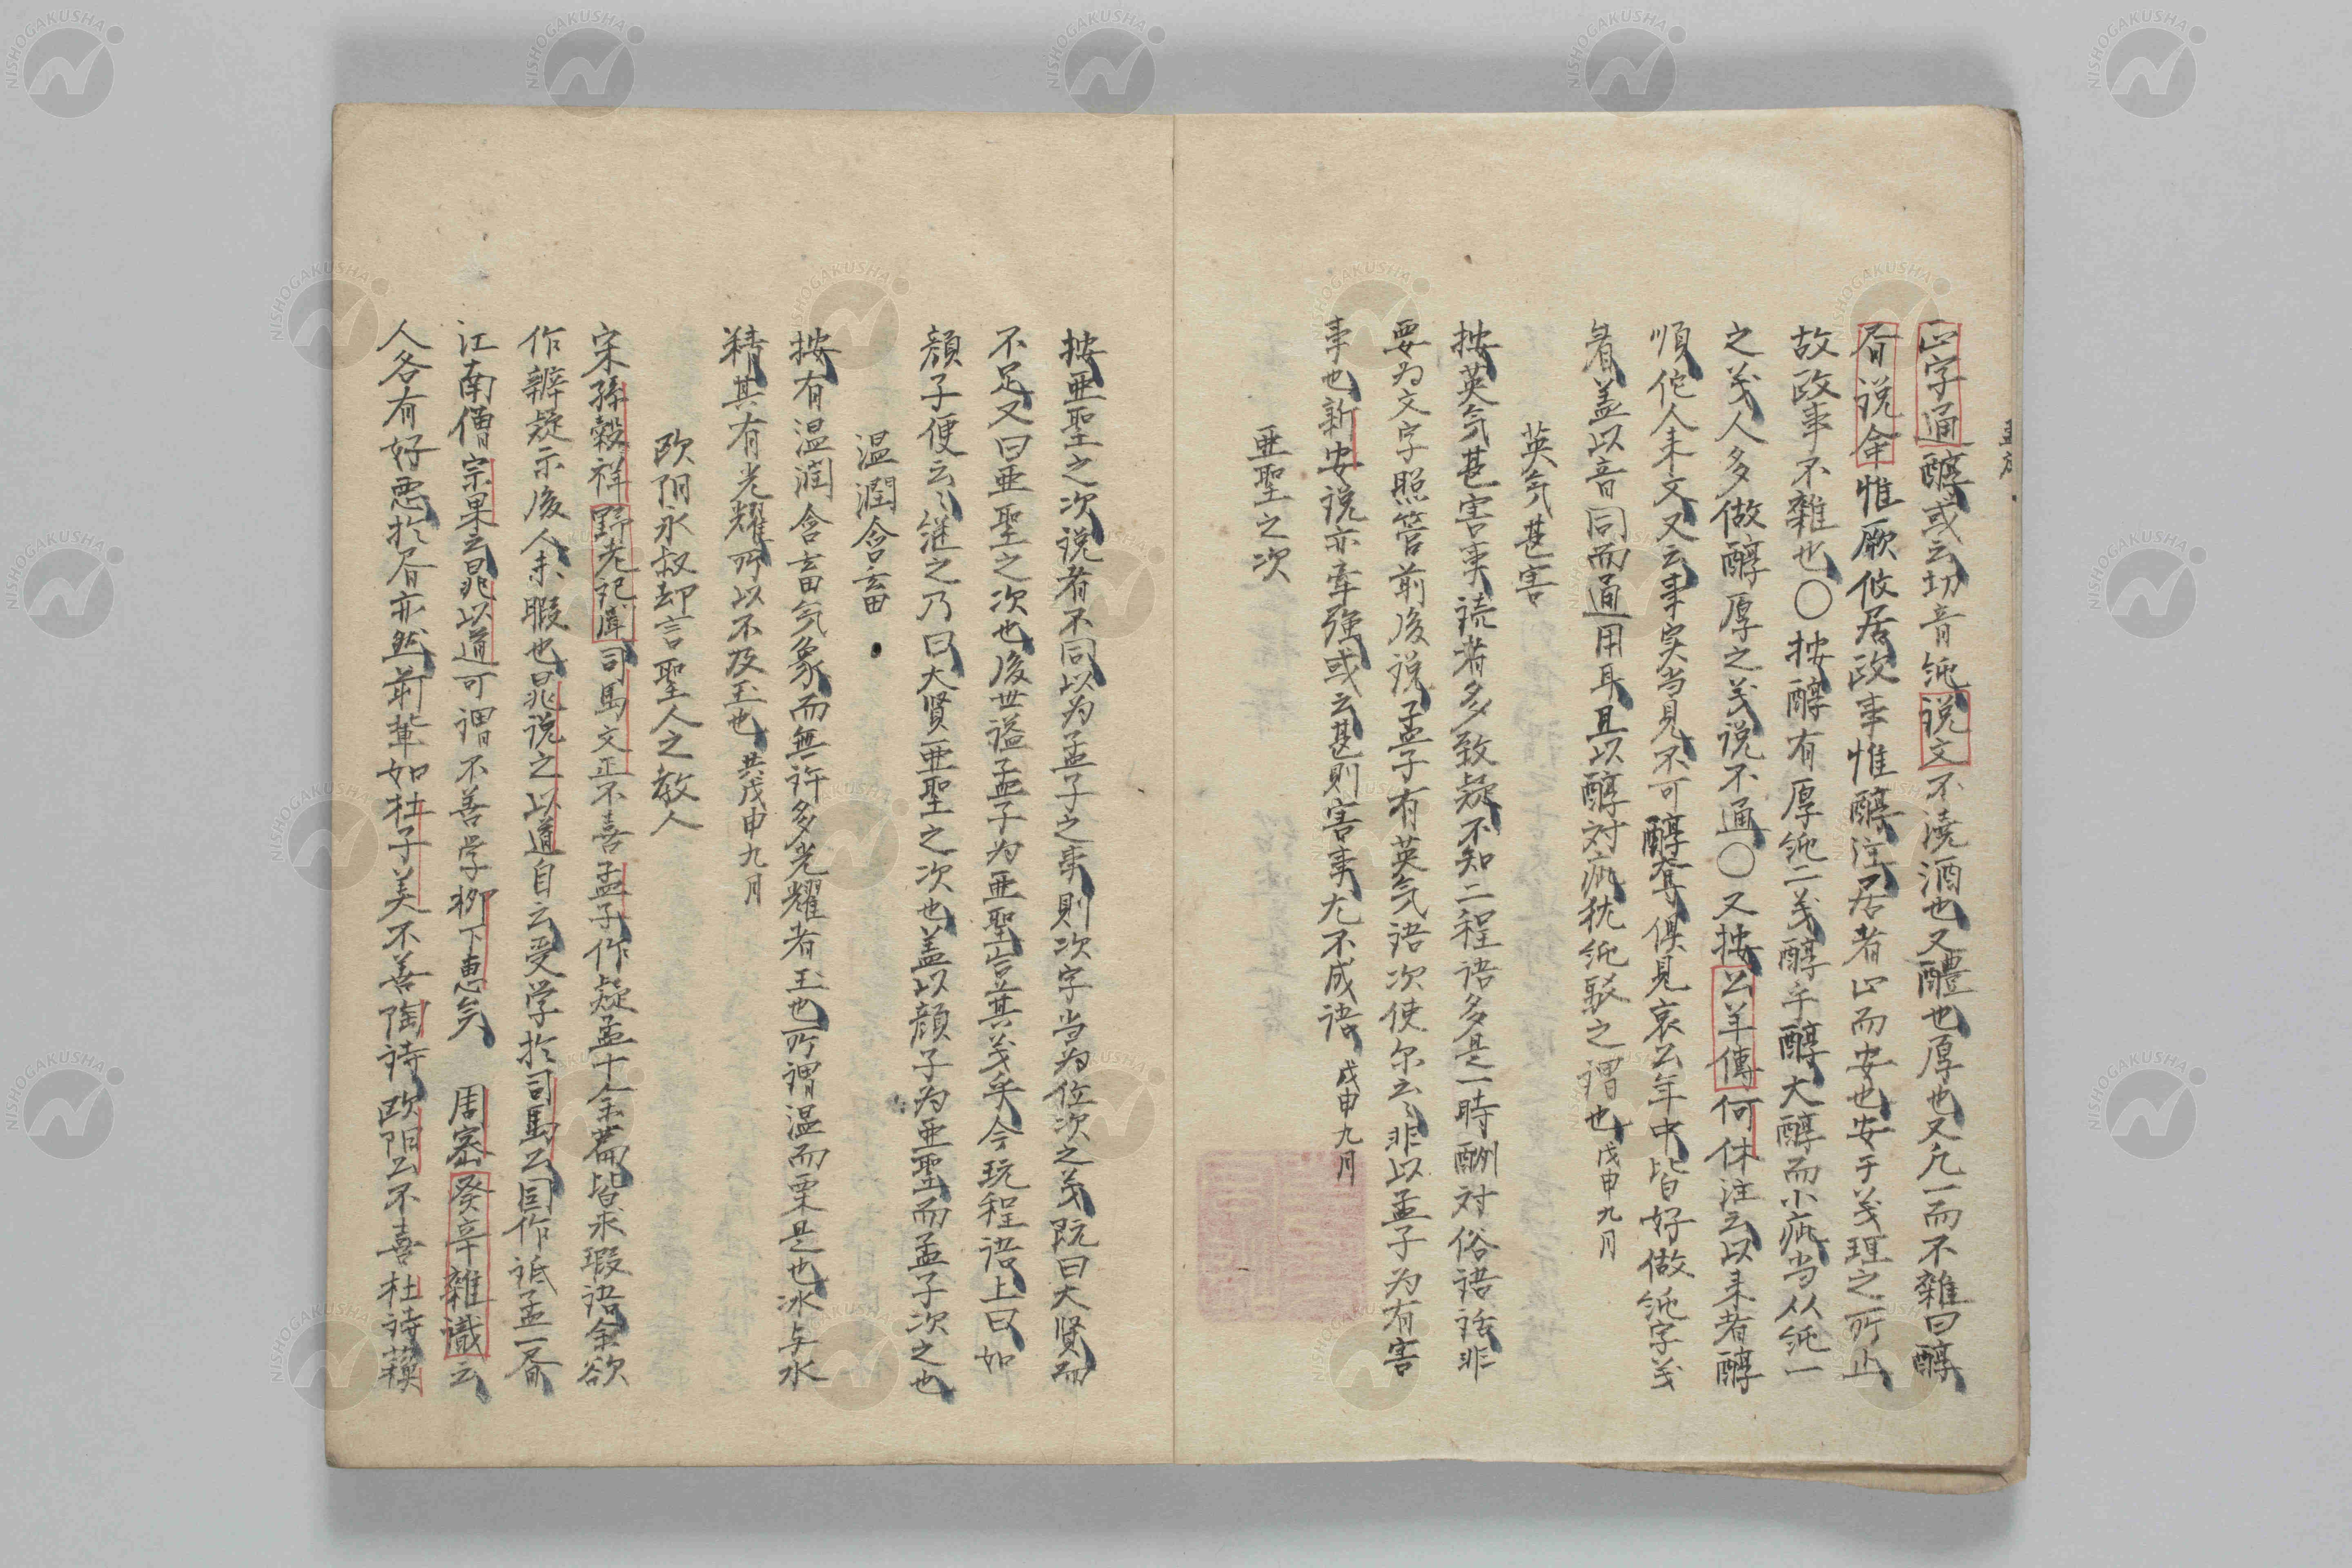 正字通醇或云切音純説文不澆酒也又醲也厚也又凡一而不雜曰醇
唇説命惟厥攸居政事惟醇注居者止而安也安于义理之所止
故政事不雜也〇按醇有厚純二义醇乎醇大醇而小疵当从純一
之义人多做醇厚之义説不通〇又按公羊傳何休注云以来者醇
順佗人来文又云事実当見不可醇奪俱見哀公年中皆好做純字义
着盖以音同而通用耳且以醇対疵犹純駁之謂也 戊申九月
英気甚害
按英気甚害事読者多致疑不知二程語多是一時酬対俗語話非
要为文字照管前後説孟子有英気語次使尔云〻非以孟子为有害
事也新安説亦牽強或云甚則害事尤不成語 戊申九月
亜聖之次
按亜聖之次説者不同以为孟子之事則次字当为位次之义既曰大賢而
不足又曰亜聖之次也後世謚孟子为亜聖豈其义乎今玩程語上曰如
顔子便云〻継之乃曰大賢亜聖之次也盖以顔子为亜聖而孟子次之也
温潤含畜
按有温潤含畜気象而無許多光耀者玉也所謂温而栗是也冰与水
精其有光耀所以不及玉也 共戊申九月
欧阳永叔却言聖人之教人
宋孫穀祥野老記聞司馬文正不喜孟子作疑孟十余篇皆求瑕語余欲
作辨疑示後人未暇也晁説之以道自云受学於司馬公闰作詆孟一斋
江南僧宗果云晁以道可謂不善学柳下恵矣 周密癸辛雜識云
人各有好惡於唇亦然前輩如杜子美不善陶诗欧阳公不喜杜诗蘓